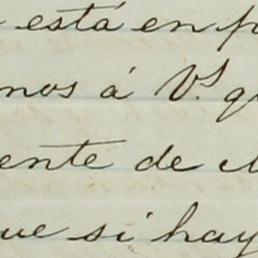 está en
nos á V.s q
ente de
ue si hay